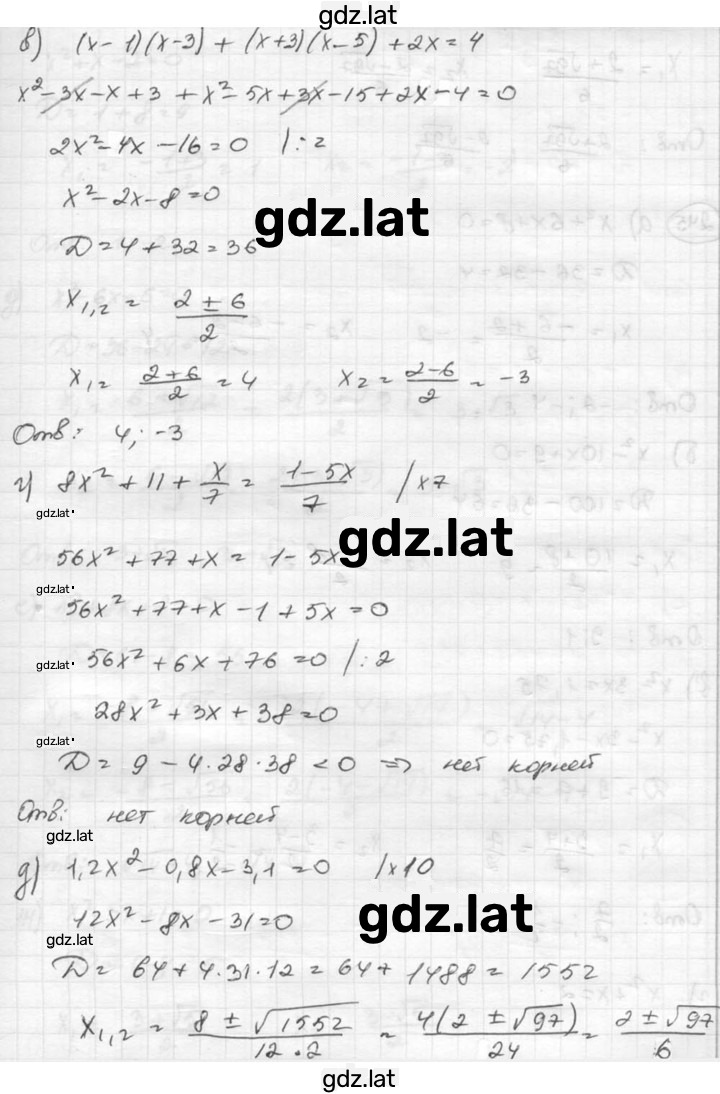 gdz.lat
в) (x-1)(x-3) + (x+3)(x-5) + 2x = 4
x² - 3x - x + 3 + x² - 5x + 3x - 15 + 2x - 4 = 0
2x² - 4x - 16 = 0 /:2
x² - 2x - 8 = 0
gdz.lat
D = 4 + 32 = 36
x₁,₂ = (2 ± 6)/2
x₁ = (2+6)/2 = 4 x₂ = (2-6)/2 = -3
Отв: 4; -3
г) 8x² + 11 + x/7 = (1-5x)/7 /×7
gdz.lat
gdz.lat
56x² + 77 + x = 1 - 5x
gdz.lat
56x² + 77 + x - 1 + 5x = 0
gdz.lat
56x² + 6x + 76 = 0 /:2
28x² + 3x + 38 = 0
gdz.lat
D = 9 - 4·28·38 < 0 => нет корней
Отв: нет корней
gdz.lat
д) 1,2x² - 0,8x - 3,1 = 0 /×10
gdz.lat
12x² - 8x - 31 = 0
gdz.lat
D = 64 + 4·31·12 = 64 + 1488 = 1552
x₁,₂ = (8 ± √1552)/(12·2) = 4(2 ± √97)/24 = (2 ± √97)/6
gdz.lat